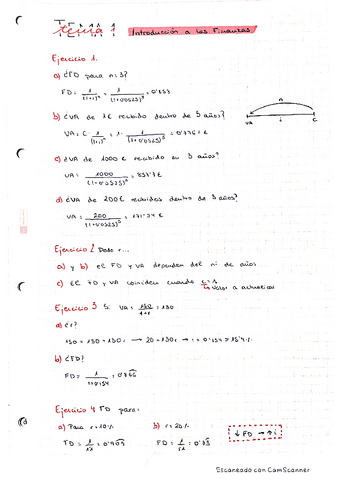 Tema 1 Introducción a las Finanzas
Ejercicio 1.
a) ¿FD para n=3?
FD = 1/(1+i)ⁿ = 1/(1+0'0525)³ = 0'853
b) ¿VA de 1€ recibido dentro de 5 años?
VA = C · 1/(1+i)ⁿ = 1 · 1/(1+0'0525)⁵ =
c) ¿VA de 1000€ recibido en 3 años?
VA = 1000/(1+0'0525)³ =
d) ¿VA de 200€ recibidos dentro de 3 años?
VA = 200/(1+0'0525)³ =
n
VA i C
Ejercicio 2 Dado r...
a) y b) el FD y VA dependen del nº de años
c) El FD y VA coinciden cuando C=1
valor a actualizar
Ejercicio 3 Si VA = 150/1+r = 130
a) ¿r?
150 = 130 + 130r → 20 = 130r → r = 0'154 = 15'4%
b) ¿FD?
FD = 1/1+0'154 = 0'866
Ejercicio 4 FD para:
a) Para r=10% b) r=20%
FD = 1/1'1 = 0'909 FD = 1/1'2 = 0'83
↓ FD → ↑ i
Escaneado con CamScanner